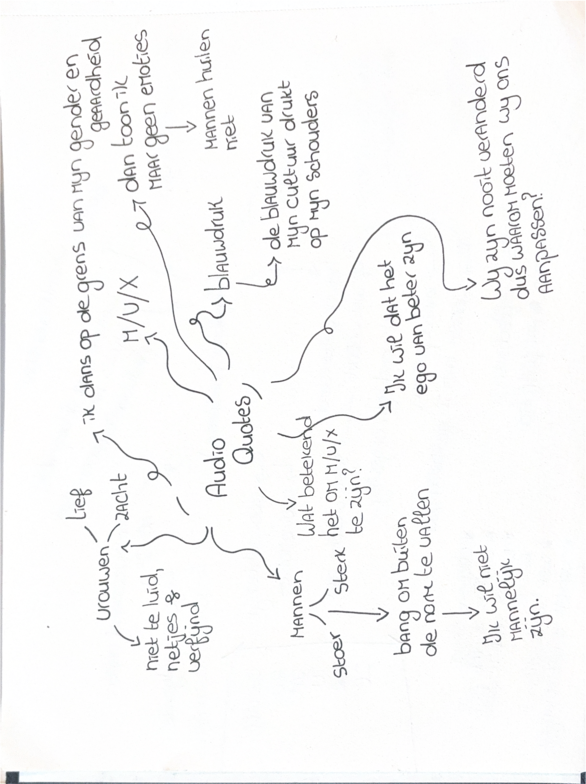 Audio
Quotes
vrouwen
lief
zacht
niet te luid,
netjes &
verfijnd
ik dans op de grens van mijn gender en
geaardheid
M/V/X
dan toon ik
maar geen emoties
mannen huilen
niet
blauwdruk
de blauwdruk van
mijn cultuur drukt
op mijn schouders
Wij zijn nooit veranderd
dus waarom moeten wij ons
aanpassen?
Ik wil dat het
ego van beter zijn
Wat betekend
het om M/V/X
te zijn?
Mannen
stoer
sterk
bang om buiten
de norm te vallen
Ik wil niet
mannelijk
zijn.